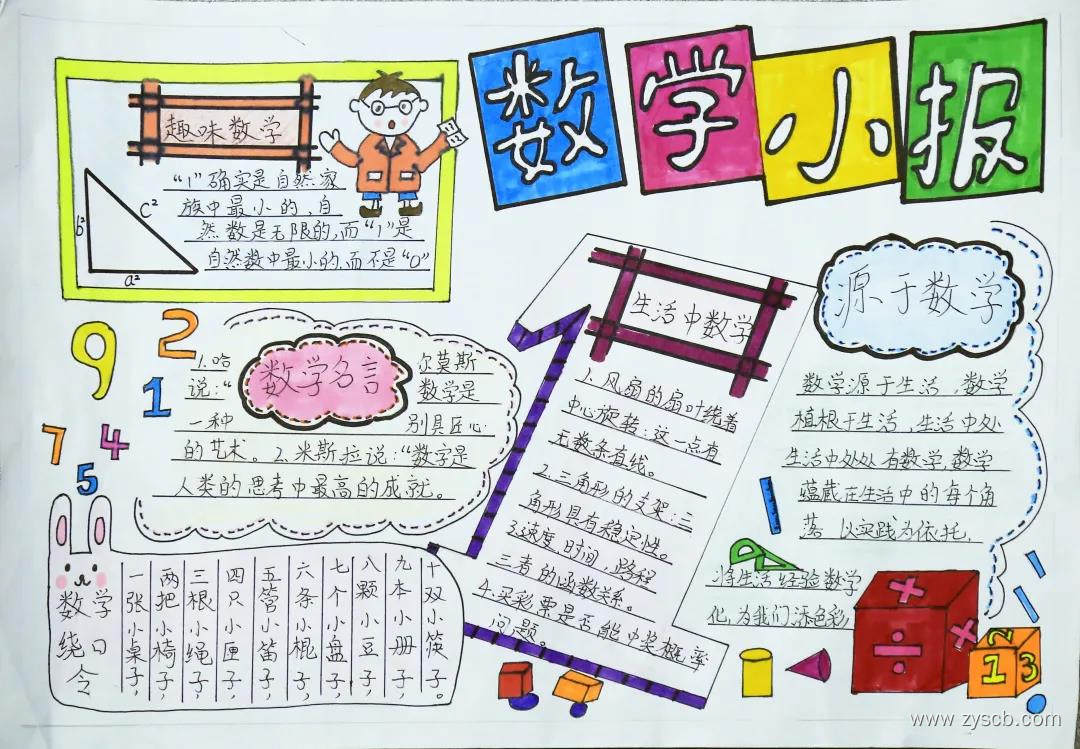 数学小报
趣味数学
“1”确实是自然家
族中最小的,自
然数是无限的,而“1”是
自然数中最小的,而不是“0”
b²
c²
a²
9
2
1
7
4
5
数学名言
1.哈尔莫斯
说:“数学是
一种别具匠心
的艺术。2.米斯拉说:“数字是
人类的思考中最高的成就。
生活中数学
1、风扇的扇叶绕着
中心旋转:这一点有
无数条直线。
2.三角形的支架:三
角形具有稳定性。
3.速度,时间,路程
三者的函数关系。
4.买彩票是否能中奖概率
问题。
源于数学
数学源于生活,数学
植根于生活,生活中处
生活中处处有数学,数学
蕴藏在生活中的每个角
落,以实践为依托,
将生活经验数学
化,为我们添色彩
数学
绕口
令
一张小桌子,
两把小椅子,
三根小绳子,
四只小匣子,
五管小笛子,
六条小棍子,
七个小盘子,
八颗小豆子,
九本小册子,
十双小筷子。
×
÷
×
2
1
3
www.zyscb.com